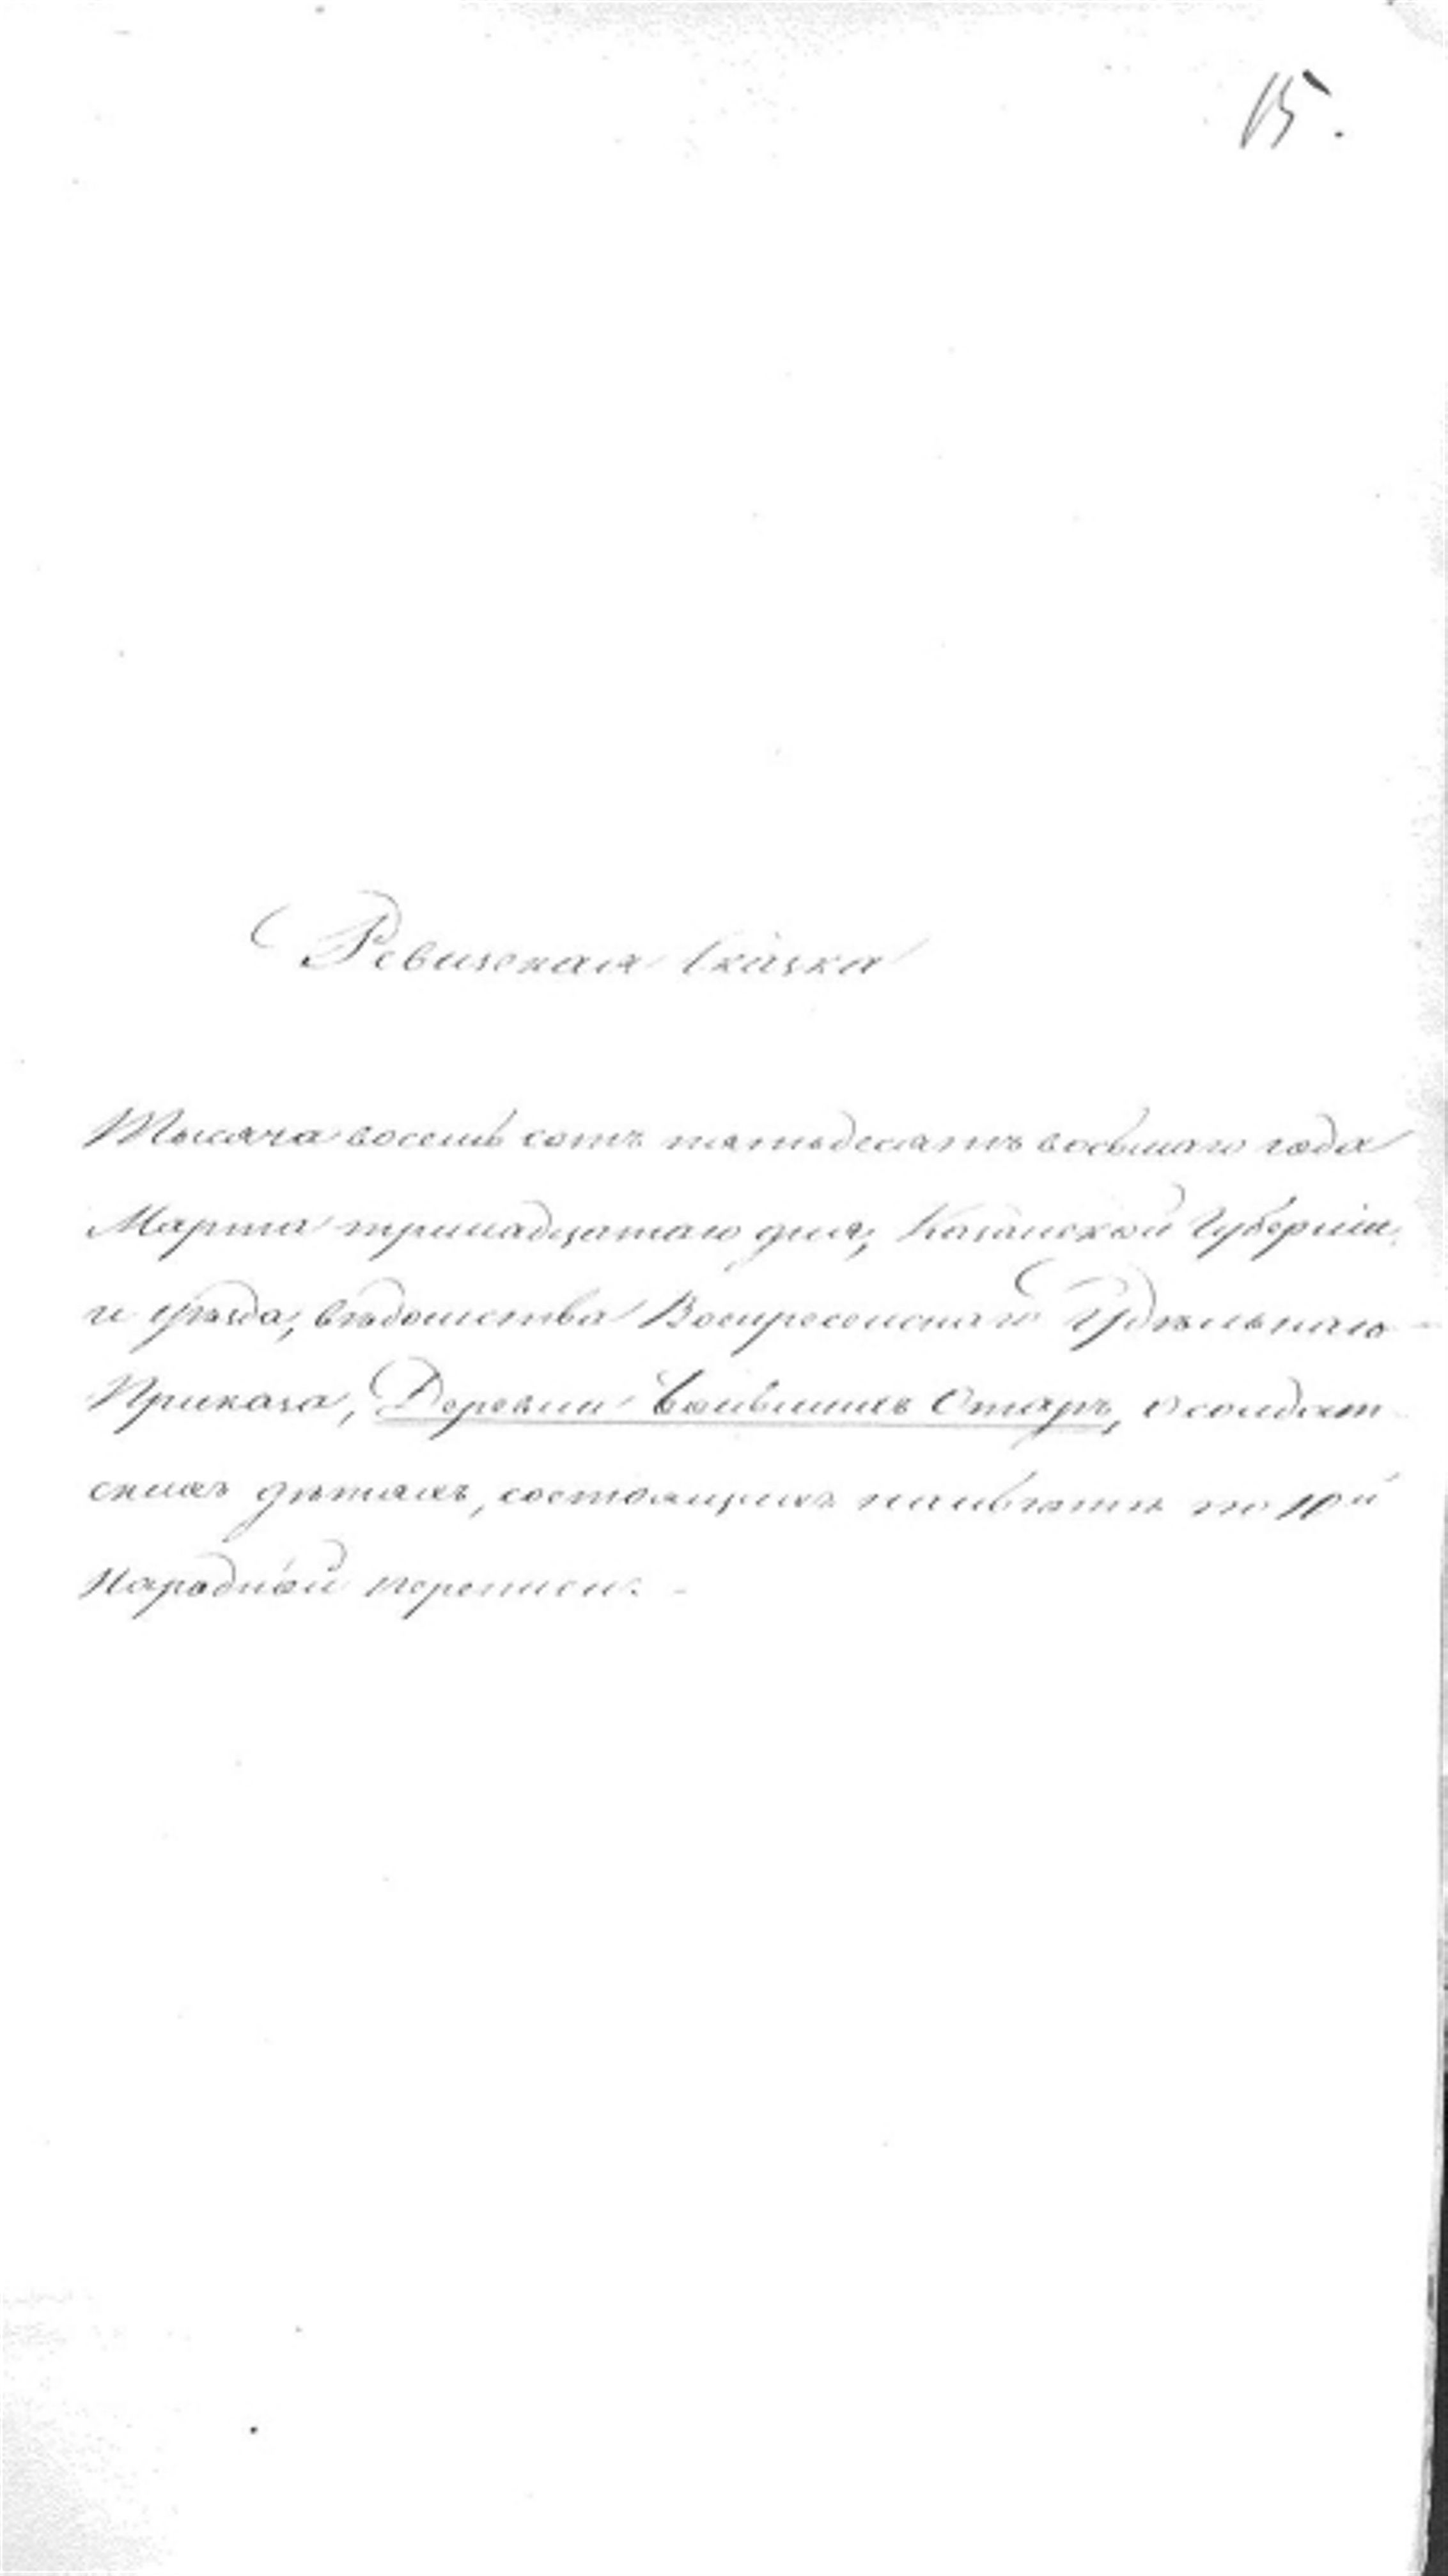 15.
Ревизская сказка
Тысяча восемь сотъ пятьдесятъ восьмаго года
Марта тринадцатаго дня, Казанской Губерніи,
и уѣзда, вѣдомства Воскресенскаго Удѣльнаго
Приказа, Деревни Большихъ Отаръ, о солдат-
скихъ дѣтяхъ, состоящихъ на лицо по 10й
Народной переписи. -